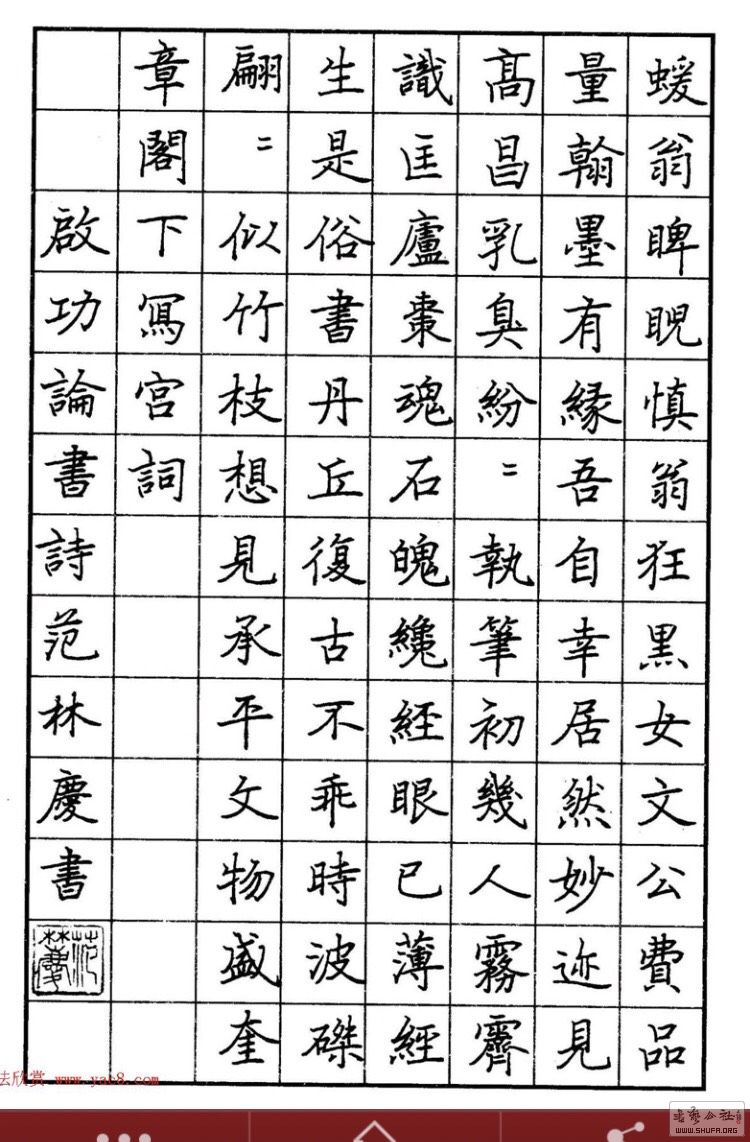 蝯翁睥睨慎翁狂黑女文公費品
量翰墨有緣吾自幸居然妙迹見
高昌乳臭紛〻執筆初幾人霧霽
識匡廬棗魂石魄纔經眼已薄經
生是俗書丹丘復古不乖時波磔
翩〻似竹枝想見承平文物盛奎
章閣下寫宮詞
啟功論書詩范林慶書
范林慶
法欣賞 www.yac8.com
書藝公社
WWW.SHUFA.ORG